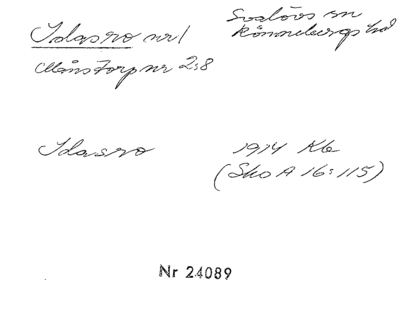 Idasro nr 1
Svalövs sn
Rönnebergs hd
Månstorp nr 2:8
Idasro
1974 Kb
(Sko A 16:115)
Nr 24089